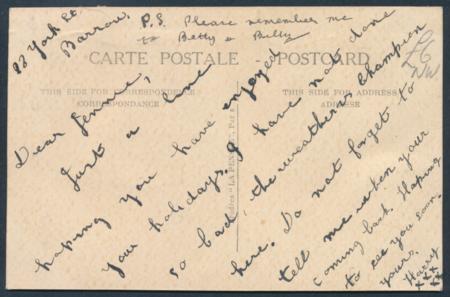 88 York St.
Barrow.
P.S. Please remember me
to Betty & Billy
CARTE POSTALE POSTCARD
THIS SIDE FOR CORRESPONDENCE
CORRESPONDANCE
THIS SIDE FOR ADDRESS
ADRESSE
£6
NW
Dear Jennie,
Just a line
hoping you have enjoyed
your holidays, I have not done
so bad, the weather is champion
here. Do not forget to
tell me when your
coming back. Hoping
to see you soon.
yours.
Harry
xxx
xxx